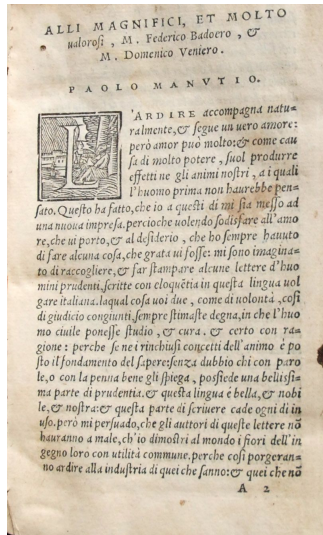 ALLI MAGNIFICI, ET MOLTO
ualorosi, M. Federico Badoero, &
M. Domenico Veniero.
PAOLO MANVTIO.
L'ARDIRE accompagna natu-
ralmente, & segue un uero amore:
però amor può molto: & come cau
sa di molto potere, suol produrre
effetti ne gli animi nostri, a i quali
l'huomo prima non haurebbe pen-
sato. Questo ha fatto, che io a questi dì mi sia messo ad
una nuoua impresa. percioche uolendo sodisfare all'amo
re, che ui porto, & al desiderio, che ho sempre hauuto
di fare alcuna cosa, che grata ui fosse: mi sono imagina-
to di raccogliere, & far stampare alcune lettere d'huo
mini prudenti, scritte con eloquẽtia in questa lingua uol
gare italiana. laqual cosa uoi due, come di uolontà, cosi
di giudicio congiunti, sempre stimaste degna, in che l'huo
mo ciuile ponesse studio, & cura. & certo con ra-
gione: perche se ne i rinchiusi concetti dell'animo è po
sto il fondamento del sapere: senza dubbio chi con paro
le, o con la penna bene gli spiega, possiede una bellissi-
ma parte di prudentia. & questa lingua è bella, & nobi
le, & nostra: & questa parte di scriuere cade ogni dì in
uso. però mi persuado, che gli auttori di queste lettere nõ
hauranno a male, ch'io dimostri al mondo i fiori dell'in
gegno loro con utilità commune. perche cosi porgeran-
no ardire alla industria di quei che sanno: & quei che nõ
A 2